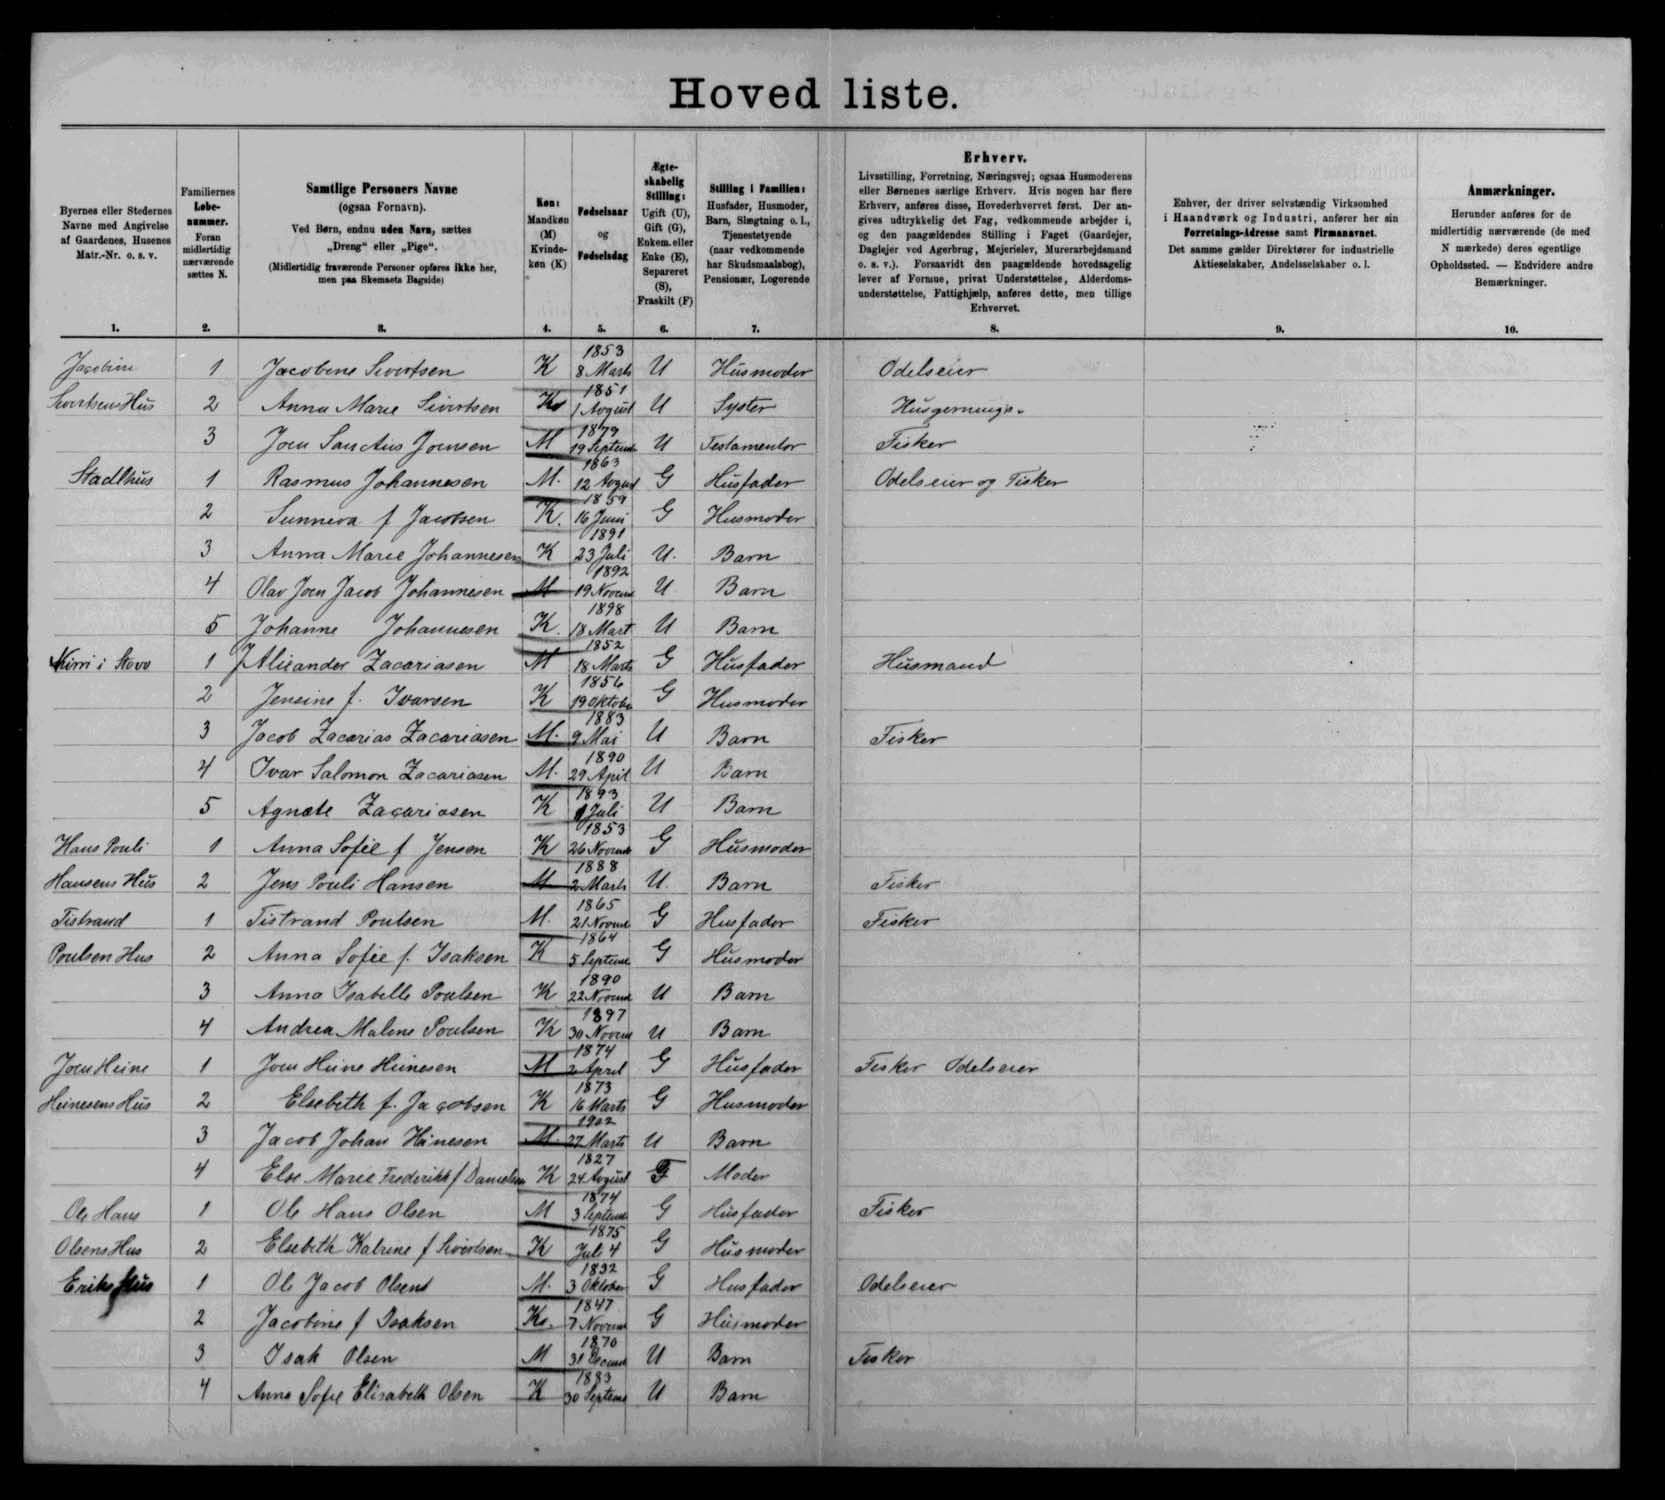 Hoved liste.
Byernes eller Stedernes Navne med Angivelse af Gaardenes, Husenes Matr.-Nr. o. s. v.
Familiernes Løbenummer. Foran midlertidig nærværende sættes N.
Samtlige Personers Navne (ogsaa Fornavn). Ved Børn, endnu uden Navn, sættes „Dreng" eller „Pige". (Midlertidig fraværende Personer opføres ikke her, men paa Skemaets Bagside)
Køn: Mandkøn (M) Kvindekøn (K)
Fødselsaar og Fødselsdag
Ægteskabelig Stilling: Ugift (U), Gift (G), Enkem. eller Enke (E), Separeret (S), Fraskilt (F)
Stilling i Familien: Husfader, Husmoder, Barn, Slægtning o. l., Tjenestetyende (naar vedkommende har Skudsmaalsbog), Pensionær, Logerende
Erhverv.
Livsstilling, Forretning, Næringsvej; ogsaa Husmoderens eller Børnenes særlige Erhverv. Hvis nogen har flere Erhverv, anføres disse, Hovederhvervet først. Der angives udtrykkelig det Fag, vedkommende arbejder i, og den paagældendes Stilling i Faget (Gaardejer, Daglejer ved Agerbrug, Mejerielev, Murerarbejdsmand o. s. v.). Forsaavidt den paagældende hovedsagelig lever af Formue, privat Understøttelse, Alderdomsunderstøttelse, Fattighjælp, anføres dette, men tillige Erhvervet.
Enhver, der driver selvstændig Virksomhed i Haandværk og Industri, anfører her sin Forretnings-Adresse samt Firmanavnet. Det samme gælder Direktører for industrielle Aktieselskaber, Andelsselskaber o. l.
Anmærkninger.
Herunder anføres for de midlertidig nærværende (de med N mærkede) deres egentlige Opholdssted. — Endvidere andre Bemærkninger.
1. 2. 3. 4. 5. 6. 7. 8. 9. 10.
Jacobine 1 Jacobine Sivertsen K 1853 8 Marts U Husmoder Odelseier
Sivertsens Hus 2 Anna Marie Sivertsen K 1851 1 Avgust U Syster Husgernings.
3 Joen Sanctus Joensen M 1879 19 Septem U Testamentor Fisker
Stadlhus 1 Rasmus Johannesen M. 1863 12 Avgust G Husfader Odelseier og Fisker
2 Sunneva f Jacobsen K. 1859 16 Juni G Husmoder
3 Anna Marie Johannesen K 1891 23 Juli U. Barn
4 Olav Joen Jacob Johannesen M 1892 19 Novem U Barn
5 Johanne Johannesen K. 1898 18 Mart U Barn
i Stovo 1 Alexander Zacariasen M 1852 18 Marts G Husfader Husmand
2 Jensine f. Ivarsen K 1856 19 Oktober G Husmoder
3 Jacob Zacarias Zacariasen M. 1883 9 Mai U Barn Fisker
4 Ivar Salomon Zacariasen M. 1890 29 April U Barn
5 Agnate Zacariasen K 1893 1 Juli U Barn
Hans Pouli 1 Anna Sofie f Jensen K 1853 26 Novem G Husmoder
Hansens Hus 2 Jens Pouli Hansen M 1888 2 Marts U. Barn Fisker
Tistrand 1 Tistrand Poulsen M. 1865 21 Novem G Husfader Fisker
Poulsen Hus 2 Anna Sofie f. Isaksen K 1864 5 Septem G Husmoder
3 Anna Isabelle Poulsen K 1890 22 Novem U Barn
4 Andrea Malene Poulsen K 1897 30 Novem U Barn
Joen Heine 1 Joen Heine Heinesen M 1874 2 April G Husfader Fisker Odelseier
Heinesens Hus 2 Elsebeth f. Jacobsen K 1873 16 Marts G Husmoder
3 Jacob Johan Heinesen M. 1902 27 Marts U Barn
4 Else Marie Frederikke f Danielsen K 1827 24 Avgust F Moder
Ole Hans 1 Ole Hans Olsen M 1874 3 Septem G Husfader Fisker
Olsens Hus 2 Elsebeth Katrine f Sivertsen K 1875 Juli 4 G Husmoder
Eriks Hus 1 Ole Jacob Olsen M. 1832 3 Oktober G Husfader Odelseier
2 Jacobine f Isaksen K. 1847 7 Novem G Husmoder
3 Isak Olsen M 1870 31 U Barn Fisker
4 Anna Sofie Elisabeth Olsen K 1883 30 Septem U Barn